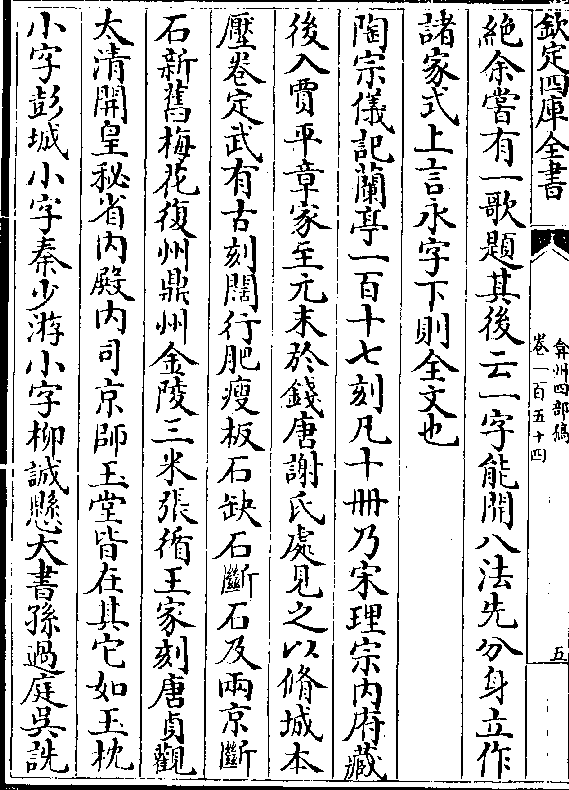 欽定四庫全書
弇州四部稿
卷一百五十四
五
絶余嘗有一歌題其後云一字能開八法先分身立作
諸家式上言永字下則全文也
陶宗儀記蘭亭一百十七刻凡十冊乃宋理宗内府藏
後入賈平章家至元末於錢唐謝氏處見之以脩城本
壓卷定武有古刻闊行肥瘦板石缺石斷石及兩京斷
石新舊梅花復州鼎州金陵三米張循王家刻唐貞觀
太清開皇秘省内殿内司京師玉堂皆在其它如玉枕
小字彭城小字秦少游小字柳誠懸大書孫過庭吳說